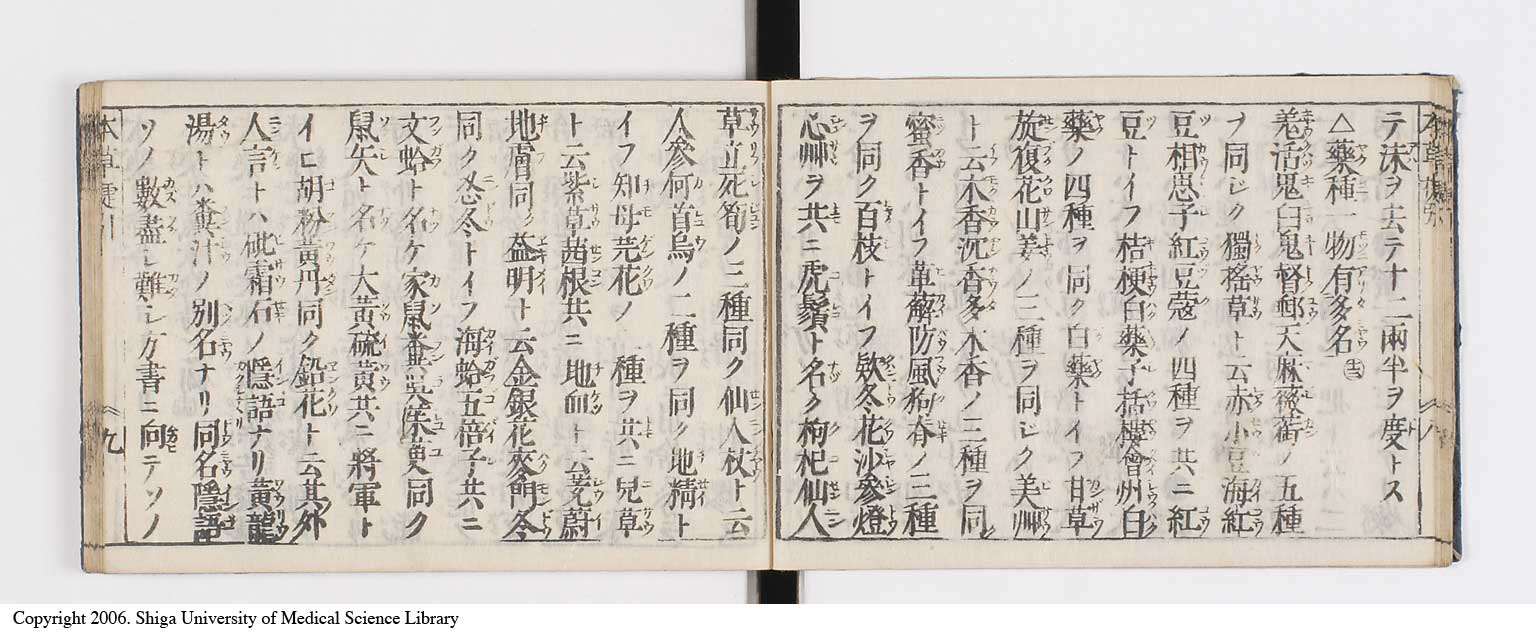 テ沫ヲ去テ十二兩半ヲ度トス
△藥種一物有多名
羌活鬼臼鬼督郵天麻薇銜ノ五種
ヲ同シク獨搖草ト云赤小豆海紅
豆相思子紅豆蔻ノ四種ヲ共ニ紅
豆トイフ桔梗白藥子栝樓會州白
藥ノ四種ヲ同ク白藥トイフ甘草
旋復花山姜ノ三種ヲ同シク美艸
ト云木香沉香多木香ノ三種ヲ同
蜜香トイフ萆薢防風狗脊ノ三種
ヲ同ク百枝トイフ欵冬花沙參燈
心艸ヲ共ニ虎鬚ト名ク枸杞仙人
草立死筍ノ三種同ク仙人杖ト云
人參何首烏ノ二種ヲ同ク地精ト
イフ知母芫花ノ 種ヲ共ニ兒草
ト云紫草茜根共ニ地血ト云茺蔚
地膚同ク益明ト云金銀花麥門冬
同ク忍冬トイフ海蛤五倍子共ニ
文蛤ト名ケ家鼠糞 同ク
鼠矢ト名ケ大黃硫黃共ニ將軍ト
イヒ胡粉黃丹同ク鉛花ト云其外
人言トハ砒霜石ノ隱語ナリ黃龍
湯トハ糞汁ノ別名ナリ同名隱語
ソノ數盡シ難シ方書ニ向テソノ
本草 九
Copyright 2006. Shiga University of Medical Science Library